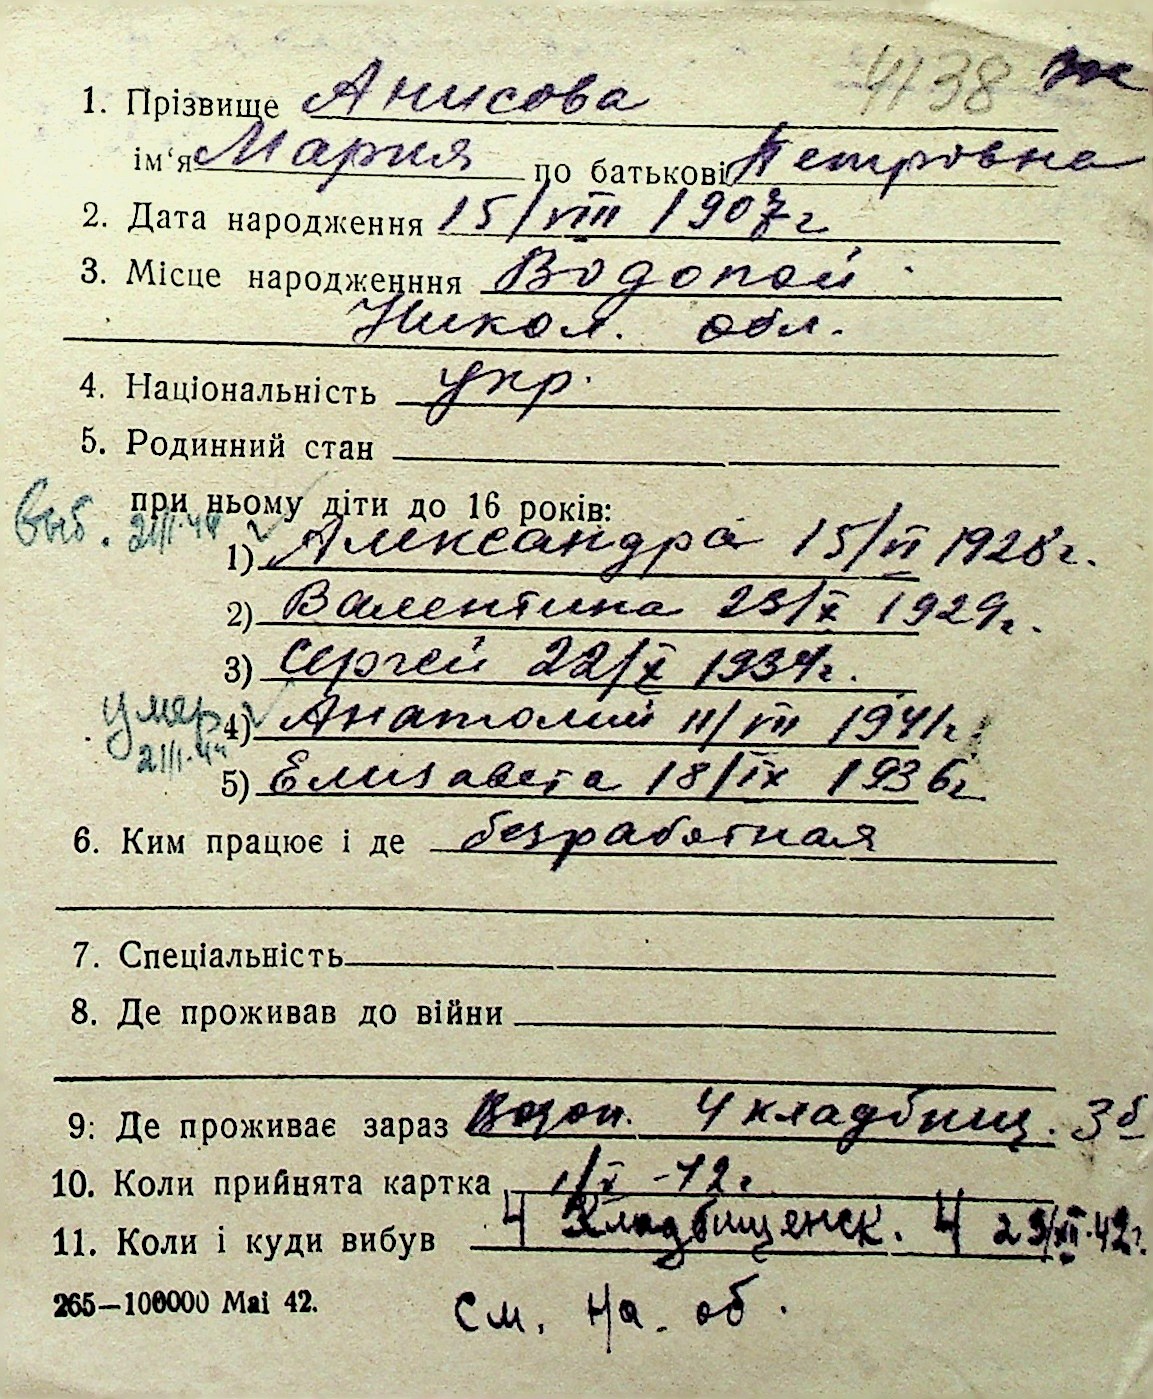 4138
1. Прізвище Анисова
ім'я Мария по батькові Петровна
2. Дата народження 15/VIII 1907г
3. Місце народженння Водопой
Никол. обл.
4. Національність укр.
5. Родинний стан
при ньому діти до 16 років:
выб.
1) Александра 15/VI 1928г.
2) Валентина 23/X 1929г.
3) Сергей 22/X 1934г.
умер
4) Анатолий 11/VII 1941г.
5) Елизавета 18/IX 1936г
6. Ким працює і де безработная
7. Спеціальність
8. Де проживав до війни
9: Де проживає зараз 4 кладбищ. 3б
10. Коли прийнята картка 1/X -42г
11. Коли і куди вибув 4 Кладбищенск. 4 29/XII.42г.
265—100000 Mai 42.
См. на. об.